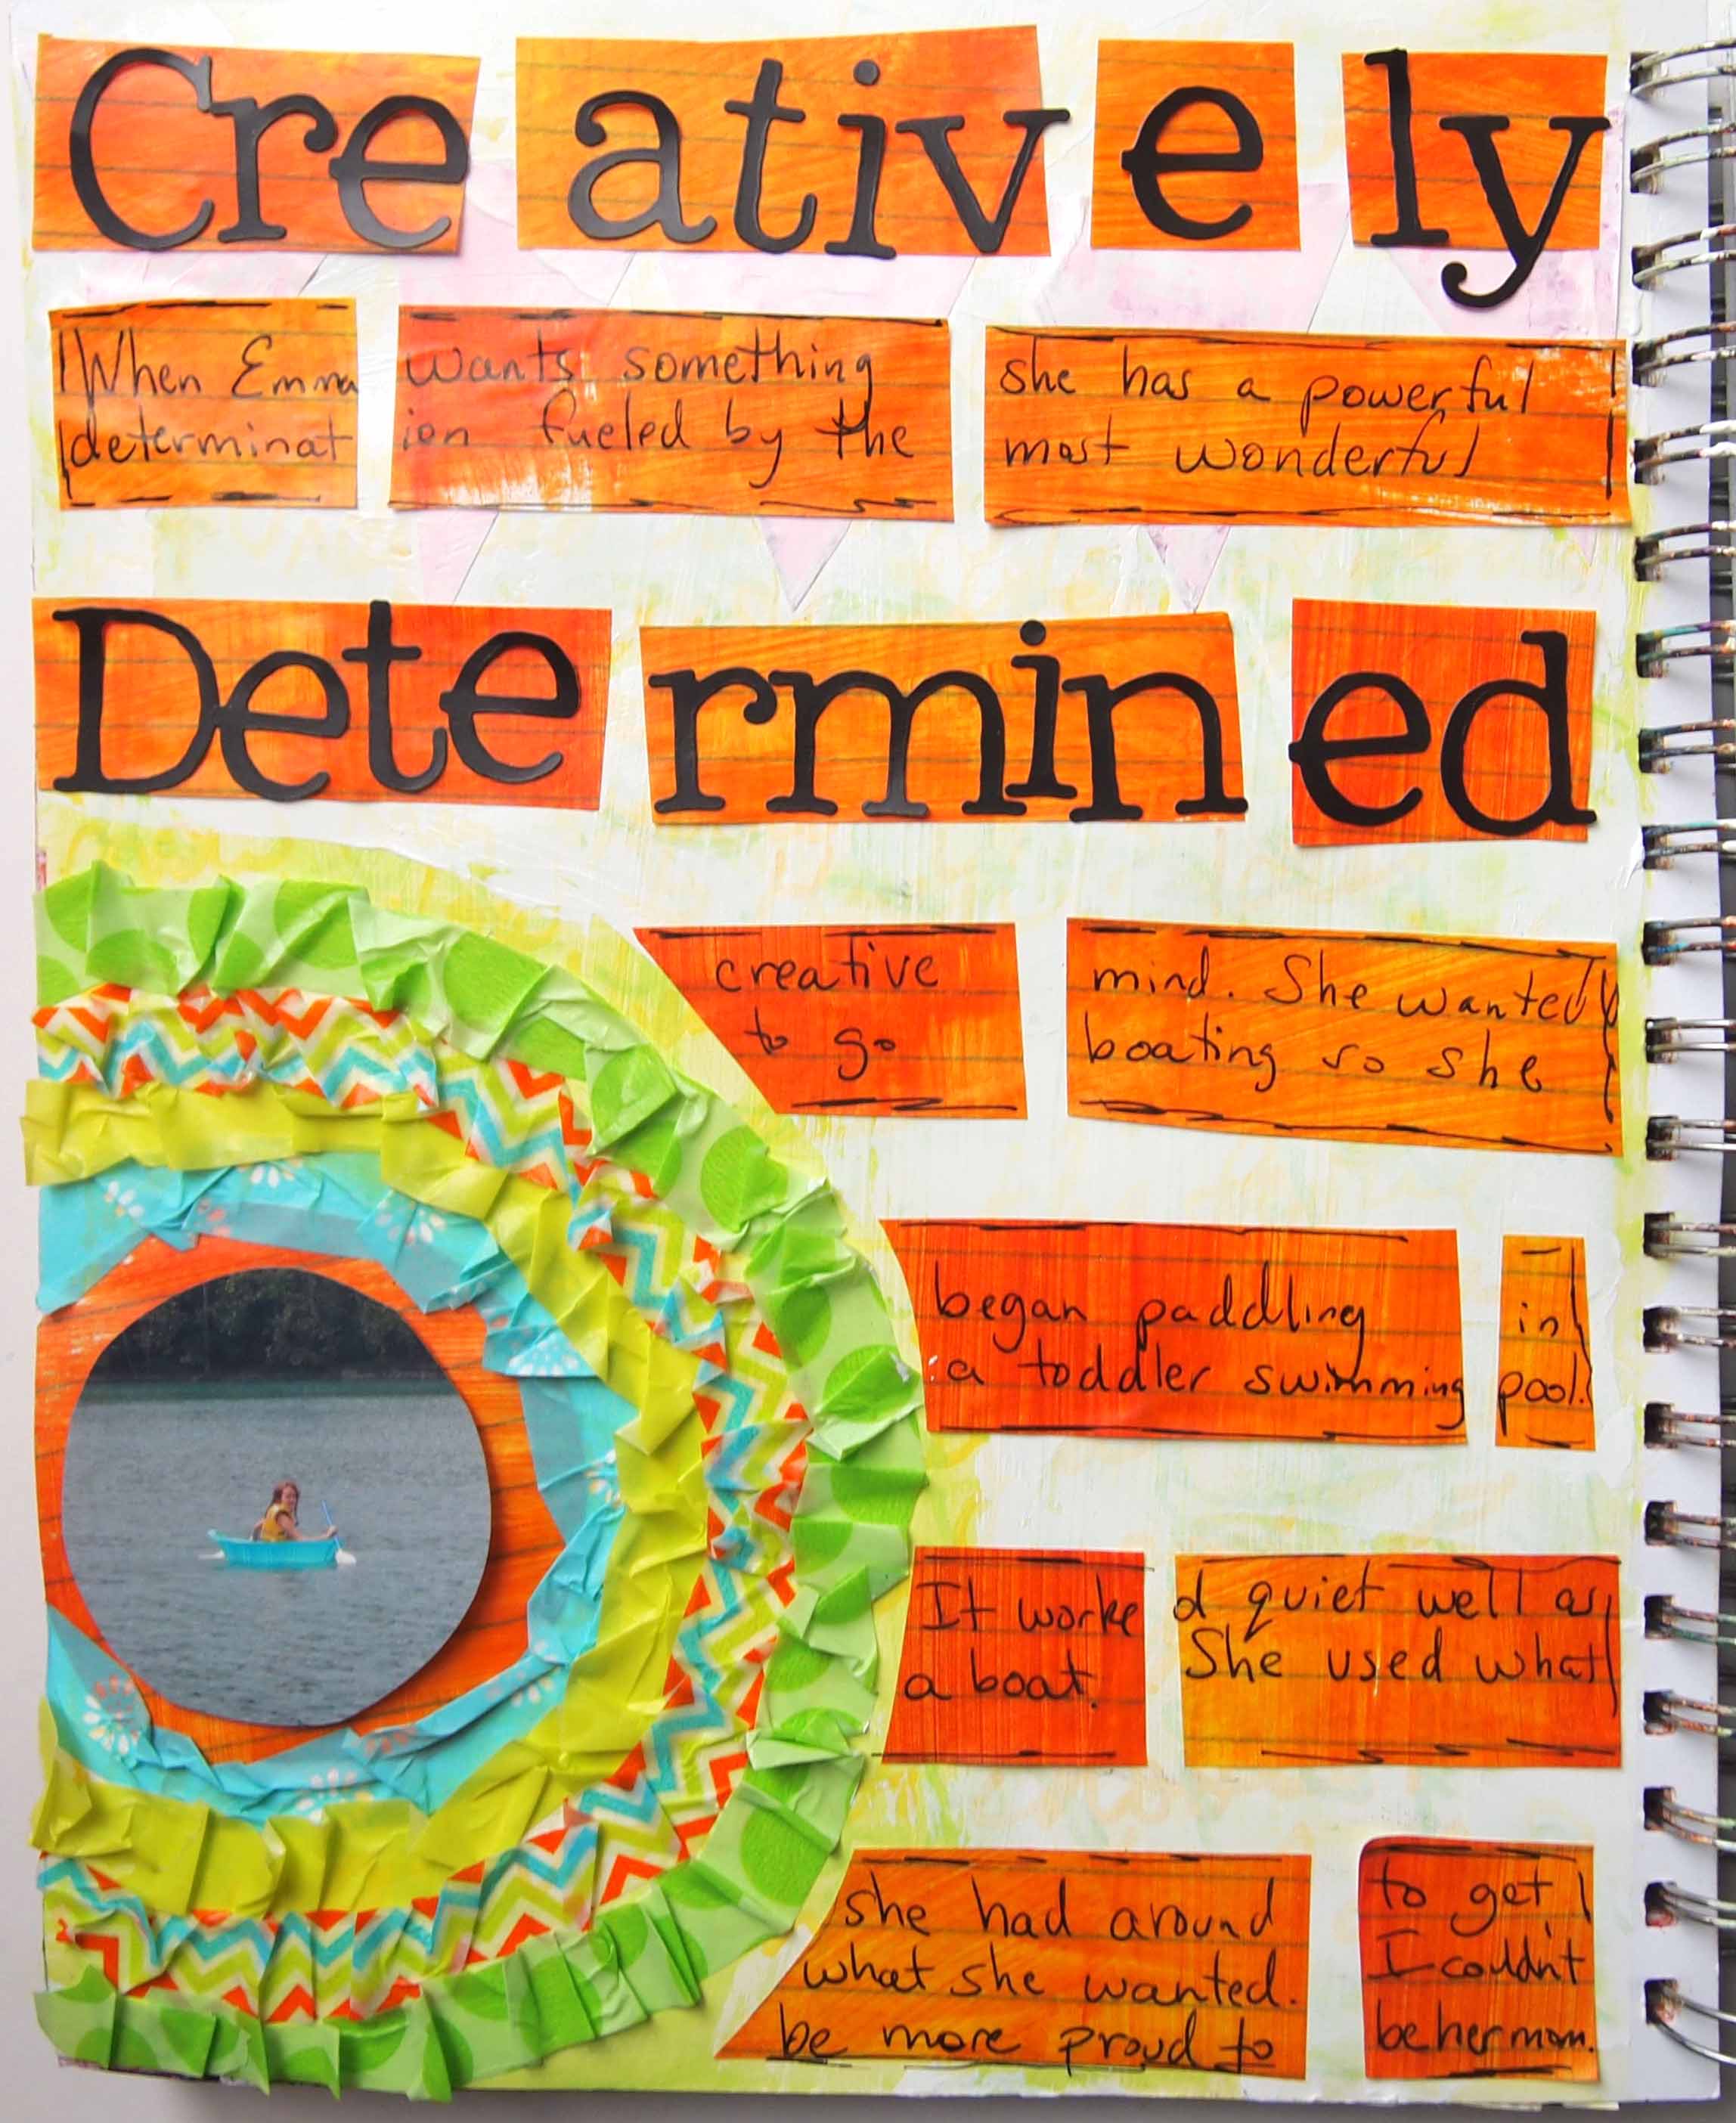 Creatively
When Emma wants something she has a powerful
determination fueled by the most wonderful
Determined
creative mind. She wanted
to go boating so she
began paddling in
a toddler swimming pool.
It worked quiet well as
a boat. She used what
she had around to get
what she wanted. I couldn't
be more proud to be her mom.